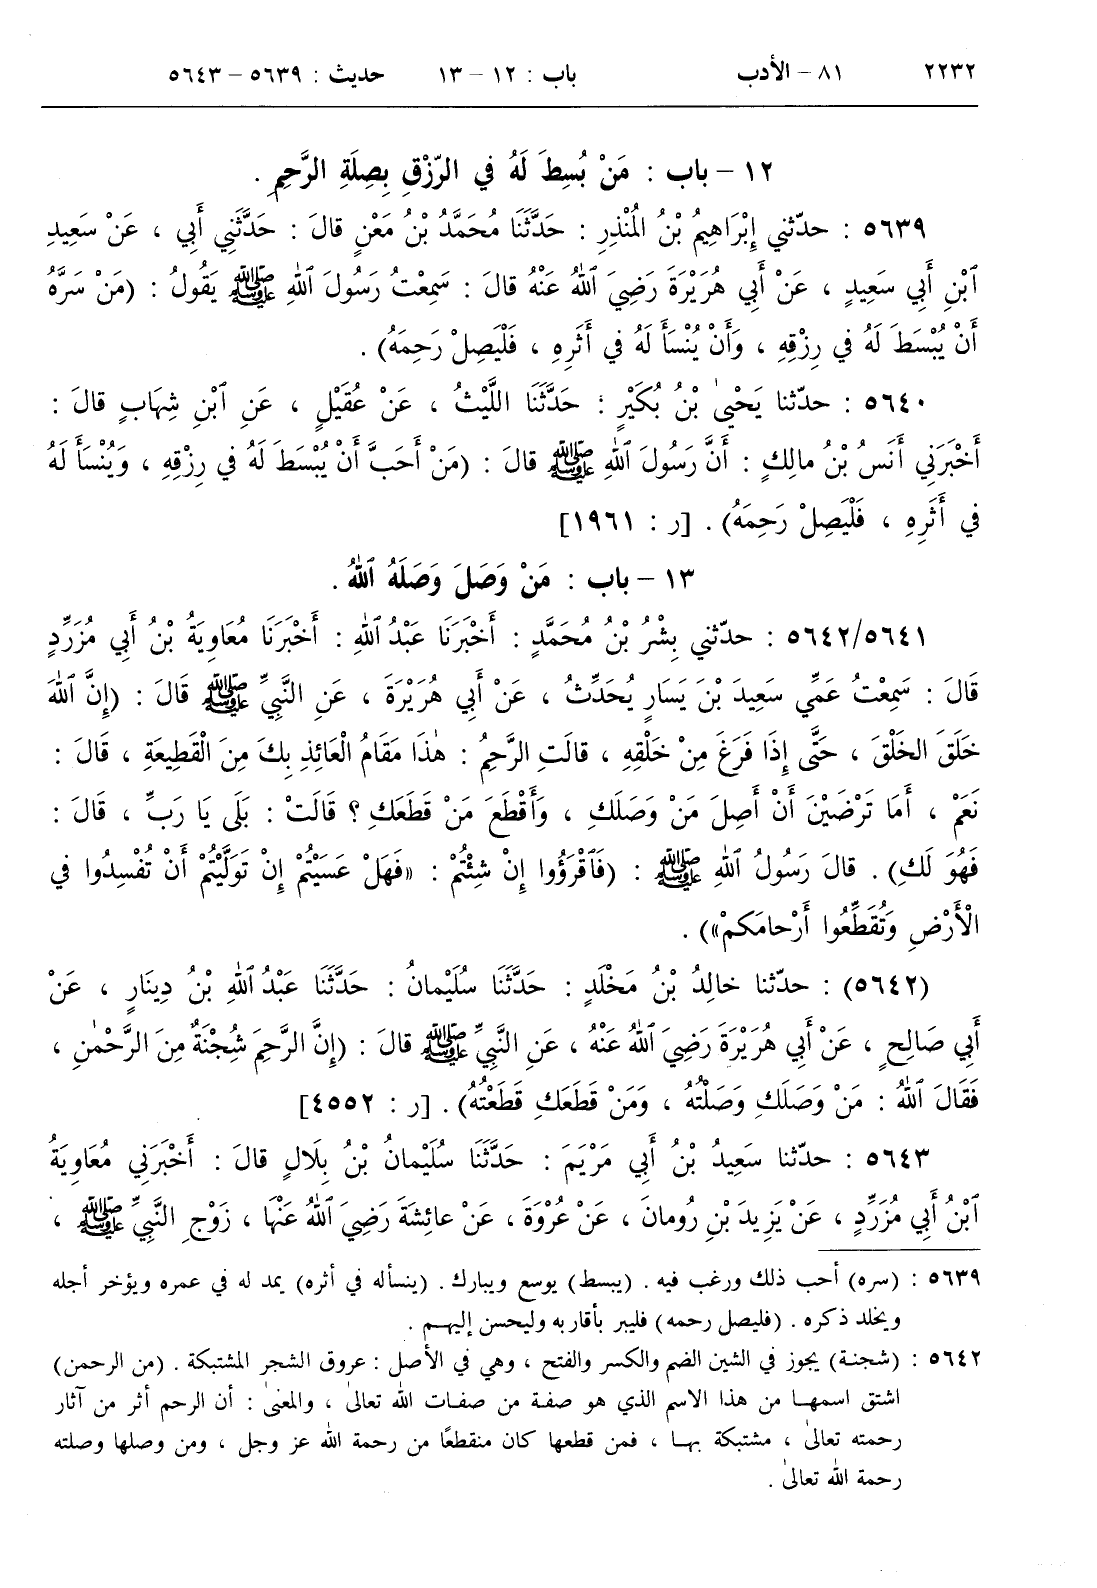 ٢٢٣٢ ٨١ – الأدب باب : ١٢ – ١٣ حديث : ٥٦٣٩ – ٥٦٤٣
١٢ – باب : مَنْ بُسِطَ لَهُ في الرِّزْقِ بِصِلَةِ الرَّحِمِ .
٥٦٣٩ : حدّثني إِبْرَاهِيمُ بْنُ المُنْذِرِ : حَدَّثَنَا مُحَمَّدُ بْنُ مَعْنٍ قالَ : حَدَّثَنِي أَبِي ، عَنْ سَعِيدِ
ٱبْنِ أَبِي سَعِيدٍ ، عَنْ أَبِي هُرَيْرَةَ رَضِيَ ٱللهُ عَنْهُ قالَ : سَمِعْتُ رَسُولَ ٱللهِ ﷺ يَقُولُ : (مَنْ سَرَّهُ
أَنْ يُبْسَطَ لَهُ في رِزْقِهِ ، وَأَنْ يُنْسَأَ لَهُ في أَثَرِهِ ، فَلْيَصِلْ رَحِمَهُ) .
٥٦٤٠ : حدّثنا يَحْيىٰ بْنُ بُكَيْرٍ : حَدَّثَنَا اللَّيْثُ ، عَنْ عُقَيْلٍ ، عَنِ ٱبْنِ شِهَابٍ قالَ :
أَخْبَرَنِي أَنَسُ بْنُ مالِكٍ : أَنَّ رَسُولَ ٱللهِ ﷺ قالَ : (مَنْ أَحَبَّ أَنْ يُبْسَطَ لَهُ في رِزْقِهِ ، وَيُنْسَأَ لَهُ
في أَثَرِهِ ، فَلْيَصِلْ رَحِمَهُ) . [ر : ١٩٦١]
١٣ – باب : مَنْ وَصَلَ وَصَلَهُ ٱللهُ .
٥٦٤٢/٥٦٤١ : حدّثني بِشْرُ بْنُ مُحَمَّدٍ : أَخْبَرَنَا عَبْدُ ٱللهِ : أَخْبَرَنَا مُعَاوِيَةُ بْنُ أَبِي مُزَرِّدٍ
قَالَ : سَمِعْتُ عَمِّي سَعِيدَ بْنَ يَسَارٍ يُحَدِّثُ ، عَنْ أَبِي هُرَيْرَةَ ، عَنِ النَّبِيِّ ﷺ قَالَ : (إِنَّ ٱللهَ
خَلَقَ الخَلْقَ ، حَتَّى إِذَا فَرَغَ مِنْ خَلْقِهِ ، قالَتِ الرَّحِمُ : هٰذَا مَقَامُ الْعَائِذِ بِكَ مِنَ الْقَطِيعَةِ ، قَالَ :
نَعَمْ ، أَمَا تَرْضَيْنَ أَنْ أَصِلَ مَنْ وَصَلَكِ ، وَأَقْطَعَ مَنْ قَطَعَكِ ؟ قَالَتْ : بَلَى يَا رَبِّ ، قَالَ :
فَهُوَ لَكِ) . قالَ رَسُولُ ٱللهِ ﷺ : (فَٱقْرَؤُوا إِنْ شِئْتُمْ : «فَهَلْ عَسَيْتُمْ إِنْ تَوَلَّيْتُمْ أَنْ تُفْسِدُوا في
الْأَرْضِ وَتُقَطِّعُوا أَرْحامَكمْ») .
(٥٦٤٢) : حدّثنا خالِدُ بْنُ مَخْلَدٍ : حَدَّثَنَا سُلَيْمانُ : حَدَّثَنَا عَبْدُ ٱللهِ بْنُ دِينَارٍ ، عَنْ
أَبِي صَالِحٍ ، عَنْ أَبِي هُرَيْرَةَ رَضِيَ ٱللهُ عَنْهُ ، عَنِ النَّبِيِّ ﷺ قالَ : (إِنَّ الرَّحِمَ شُِجْنَةٌ مِنَ الرَّحْمٰنِ ،
فَقَالَ ٱللهُ : مَنْ وَصَلَكِ وَصَلْتُهُ ، وَمَنْ قَطَعَكِ قَطَعْتُهُ) . [ر : ٤٥٥٢]
٥٦٤٣ : حدّثنا سَعِيدُ بْنُ أَبِي مَرْيَمَ : حَدَّثَنَا سُلَيْمانُ بْنُ بِلَالٍ قالَ : أَخْبَرَنِي مُعَاوِيَةُ
ٱبْنُ أَبِي مُزَرِّدٍ ، عَنْ يَزِيدَ بْنِ رُومانَ ، عَنْ عُرْوَةَ ، عَنْ عائِشَةَ رَضِيَ ٱللهُ عَنْهَا ، زَوْجِ النَّبِيِّ ﷺ ،
٥٦٣٩ : (سره) أحب ذلك ورغب فيه . (يبسط) يوسع ويبارك . (ينسأله في أثره) يمد له في عمره ويؤخر أجله
ويخلد ذكره . (فليصل رحمه) فليبر بأقاربه وليحسن إليهم .
٥٦٤٢ : (شجنة) يجوز في الشين الضم والكسر والفتح ، وهي في الأصل : عروق الشجر المشتبكة . (من الرحمن)
اشتق اسمها من هذا الاسم الذي هو صفة من صفات الله تعالىٰ ، والمعنىٰ : أن الرحم أثر من آثار
رحمته تعالىٰ ، مشتبكة بها ، فمن قطعها كان منقطعًا من رحمة الله عز وجل ، ومن وصلها وصلته
رحمة الله تعالىٰ .